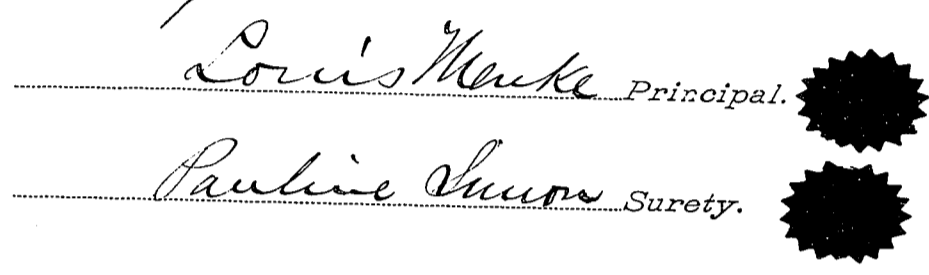 Louis Menke Principal.
Pauline Simon Surety.